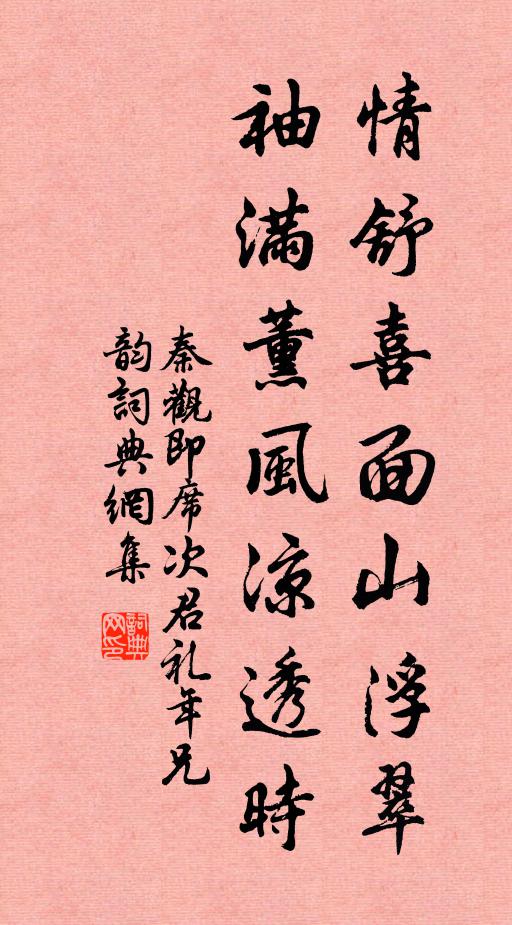 情舒喜面山浮翠
袖满薰風凉透時
秦觀即席次君礼年兄
韵詞典網集
詞典网印